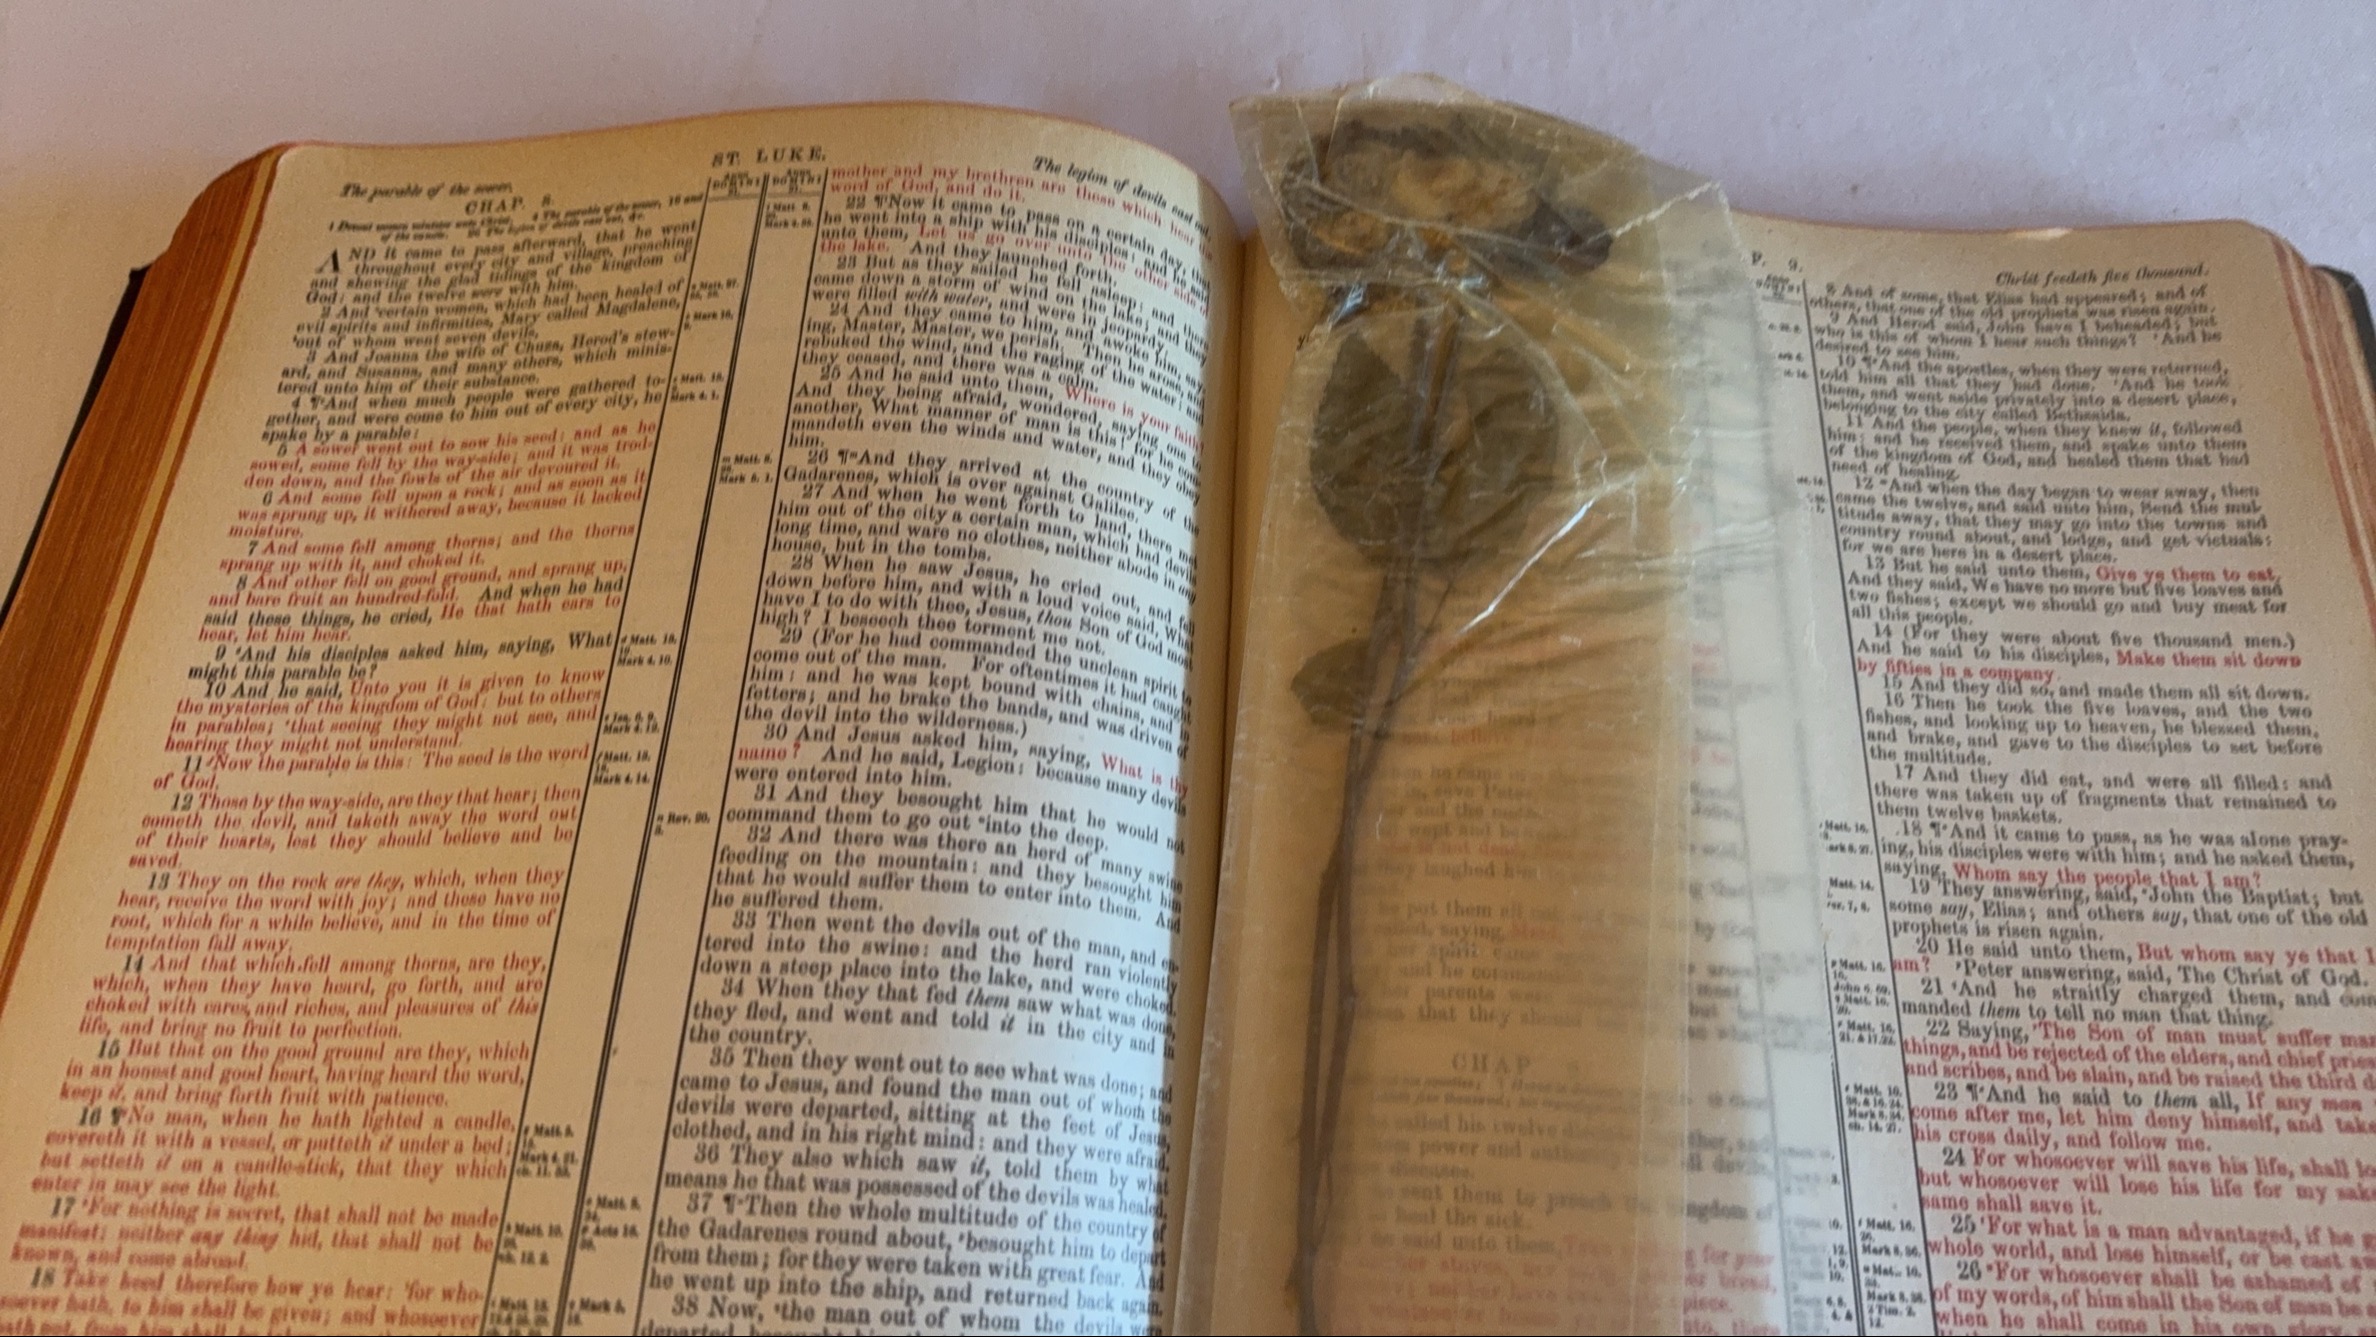 The parable of the sower.
ST. LUKE.
The legion of devils cast out.
CHAP. 8.
AND it came to pass afterward, that he went
throughout every city and village, preaching
and shewing the glad tidings of the kingdom of
God: and the twelve were with him,
2 And certain women, which had been healed of
evil spirits and infirmities, Mary called Magdalene,
out of whom went seven devils,
3 And Joanna the wife of Chuza, Herod's stew-
ard, and Susanna, and many others, which minis-
tered unto him of their substance.
4 ¶ And when much people were gathered to-
gether, and were come to him out of every city, he
spake by a parable:
5 A sower went out to sow his seed: and as he
sowed, some fell by the way-side; and it was trod-
den down, and the fowls of the air devoured it.
6 And some fell upon a rock; and as soon as it
was sprung up, it withered away, because it lacked
moisture.
7 And some fell among thorns; and the thorns
sprang up with it, and choked it.
8 And other fell on good ground, and sprang up,
and bare fruit an hundred-fold. And when he had
said these things, he cried, He that hath ears to
hear, let him hear.
9 And his disciples asked him, saying, What
might this parable be?
10 And he said, Unto you it is given to know
the mysteries of the kingdom of God: but to others
in parables; that seeing they might not see, and
hearing they might not understand.
11 Now the parable is this: The seed is the word
of God.
12 Those by the way-side, are they that hear; then
cometh the devil, and taketh away the word out
of their hearts, lest they should believe and be
saved.
13 They on the rock are they, which, when they
hear, receive the word with joy; and these have no
root, which for a while believe, and in the time of
temptation fall away.
14 And that which fell among thorns, are they,
which, when they have heard, go forth, and are
choked with cares, and riches, and pleasures of this
life, and bring no fruit to perfection.
15 But that on the good ground are they, which
in an honest and good heart, having heard the word,
keep it, and bring forth fruit with patience.
16 ¶ No man, when he hath lighted a candle,
covereth it with a vessel, or putteth it under a bed;
but setteth it on a candle-stick, that they which
enter in may see the light.
17 For nothing is secret, that shall not be made
manifest; neither any thing hid, that shall not be
known, and come abroad.
18 Take heed therefore how ye hear: for who-
soever hath, to him shall be given; and whosoever
hath not, from him shall be
mother and my brethren are these which hear the
word of God, and do it.
22 ¶ Now it came to pass on a certain day, that
he went into a ship with his disciples: and he said
unto them, Let us go over unto the other side of
the lake. And they launched forth.
23 But as they sailed he fell asleep: and there
came down a storm of wind on the lake; and they
were filled with water, and were in jeopardy.
24 And they came to him, and awoke him, say-
ing, Master, Master, we perish. Then he arose, and
rebuked the wind, and the raging of the water: and
they ceased, and there was a calm.
25 And he said unto them, Where is your faith?
And they being afraid, wondered, saying one to
another, What manner of man is this! for he com-
mandeth even the winds and water, and they obey
him.
26 ¶ And they arrived at the country of the
Gadarenes, which is over against Galilee.
27 And when he went forth to land, there met
him out of the city a certain man, which had devils
long time, and ware no clothes, neither abode in any
house, but in the tombs.
28 When he saw Jesus, he cried out, and fell
down before him, and with a loud voice said, What
have I to do with thee, Jesus, thou Son of God most
high? I beseech thee torment me not.
29 (For he had commanded the unclean spirit to
come out of the man. For oftentimes it had caught
him: and he was kept bound with chains, and in
fetters; and he brake the bands, and was driven of
the devil into the wilderness.)
30 And Jesus asked him, saying, What is thy
name? And he said, Legion: because many devils
were entered into him.
31 And they besought him that he would not
command them to go out into the deep.
32 And there was there an herd of many swine
feeding on the mountain: and they besought him
that he would suffer them to enter into them. And
he suffered them.
33 Then went the devils out of the man, and en-
tered into the swine: and the herd ran violently
down a steep place into the lake, and were choked.
34 When they that fed them saw what was done,
they fled, and went and told it in the city and in
the country.
35 Then they went out to see what was done; and
came to Jesus, and found the man out of whom the
devils were departed, sitting at the feet of Jesus,
clothed, and in his right mind: and they were afraid.
36 They also which saw it, told them by what
means he that was possessed of the devils was healed.
37 ¶ Then the whole multitude of the country of
the Gadarenes round about, besought him to depart
from them; for they were taken with great fear. And
he went up into the ship, and returned back again.
38 Now, the man out of whom the devils were
CHAP
P. 9.
Christ feedeth five thousand.
8 And of some, that Elias had appeared; and of
others, that one of the old prophets was risen again.
9 And Herod said, John have I beheaded; but
who is this of whom I hear such things? And he
desired to see him.
10 ¶ And the apostles, when they were returned,
told him all that they had done. And he took
them, and went aside privately into a desert place,
belonging to the city called Bethsaida.
11 And the people, when they knew it, followed
him: and he received them, and spake unto them
of the kingdom of God, and healed them that had
need of healing.
12 And when the day began to wear away, then
came the twelve, and said unto him, Send the mul-
titude away, that they may go into the towns and
country round about, and lodge, and get victuals:
for we are here in a desert place.
13 But he said unto them, Give ye them to eat.
And they said, We have no more but five loaves and
two fishes; except we should go and buy meat for
all this people.
14 (For they were about five thousand men.)
And he said to his disciples, Make them sit down
by fifties in a company.
15 And they did so, and made them all sit down.
16 Then he took the five loaves, and the two
fishes, and looking up to heaven, he blessed them,
and brake, and gave to the disciples to set before
the multitude.
17 And they did eat, and were all filled: and
there was taken up of fragments that remained to
them twelve baskets.
18 ¶ And it came to pass, as he was alone pray-
ing, his disciples were with him; and he asked them,
saying, Whom say the people that I am?
19 They answering, said, John the Baptist; but
some say, Elias; and others say, that one of the old
prophets is risen again.
20 He said unto them, But whom say ye that I
am? Peter answering, said, The Christ of God.
21 And he straitly charged them, and com-
manded them to tell no man that thing,
22 Saying, The Son of man must suffer man
things, and be rejected of the elders, and chief pries
and scribes, and be slain, and be raised the third d
23 ¶ And he said to them all, If any man
come after me, let him deny himself, and take
his cross daily, and follow me.
24 For whosoever will save his life, shall lo
but whosoever will lose his life for my sak
same shall save it.
25 For what is a man advantaged, if he g
whole world, and lose himself, or be cast a
26 For whosoever shall be ashamed of
of my words, of him shall the Son of man be
when he shall come in his own